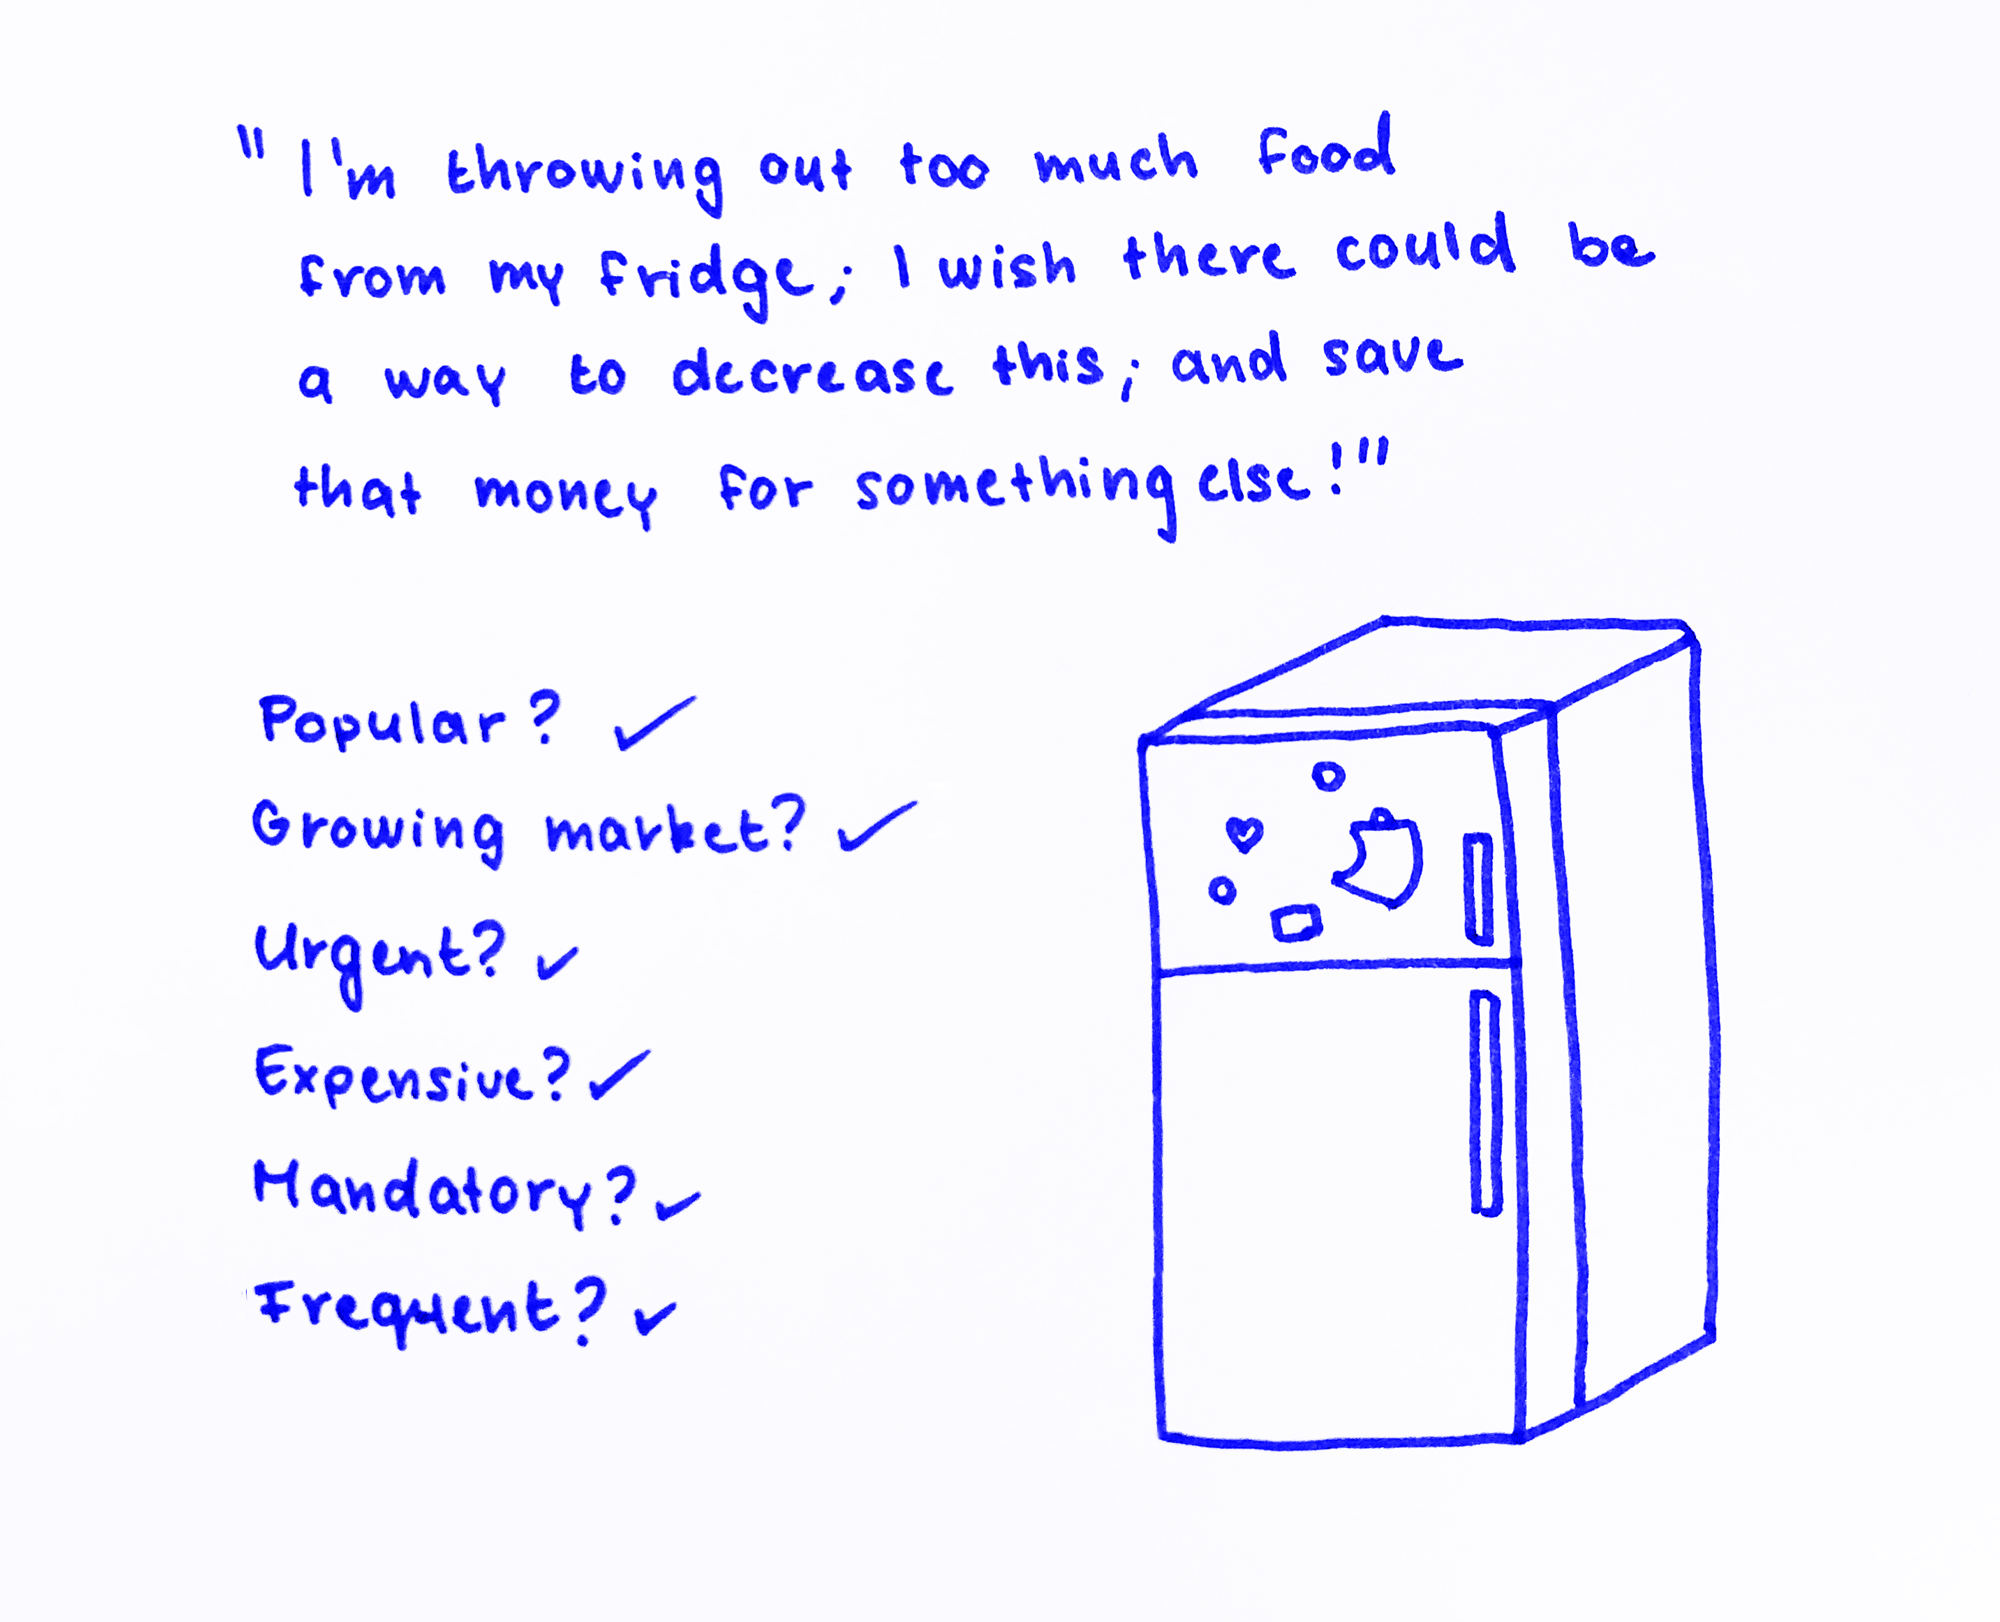 "I'm throwing out too much food
from my fridge; I wish there could be
a way to decrease this; and save
that money for something else!"
Popular? ✓
Growing market? ✓
Urgent? ✓
Expensive? ✓
Mandatory? ✓
Frequent? ✓